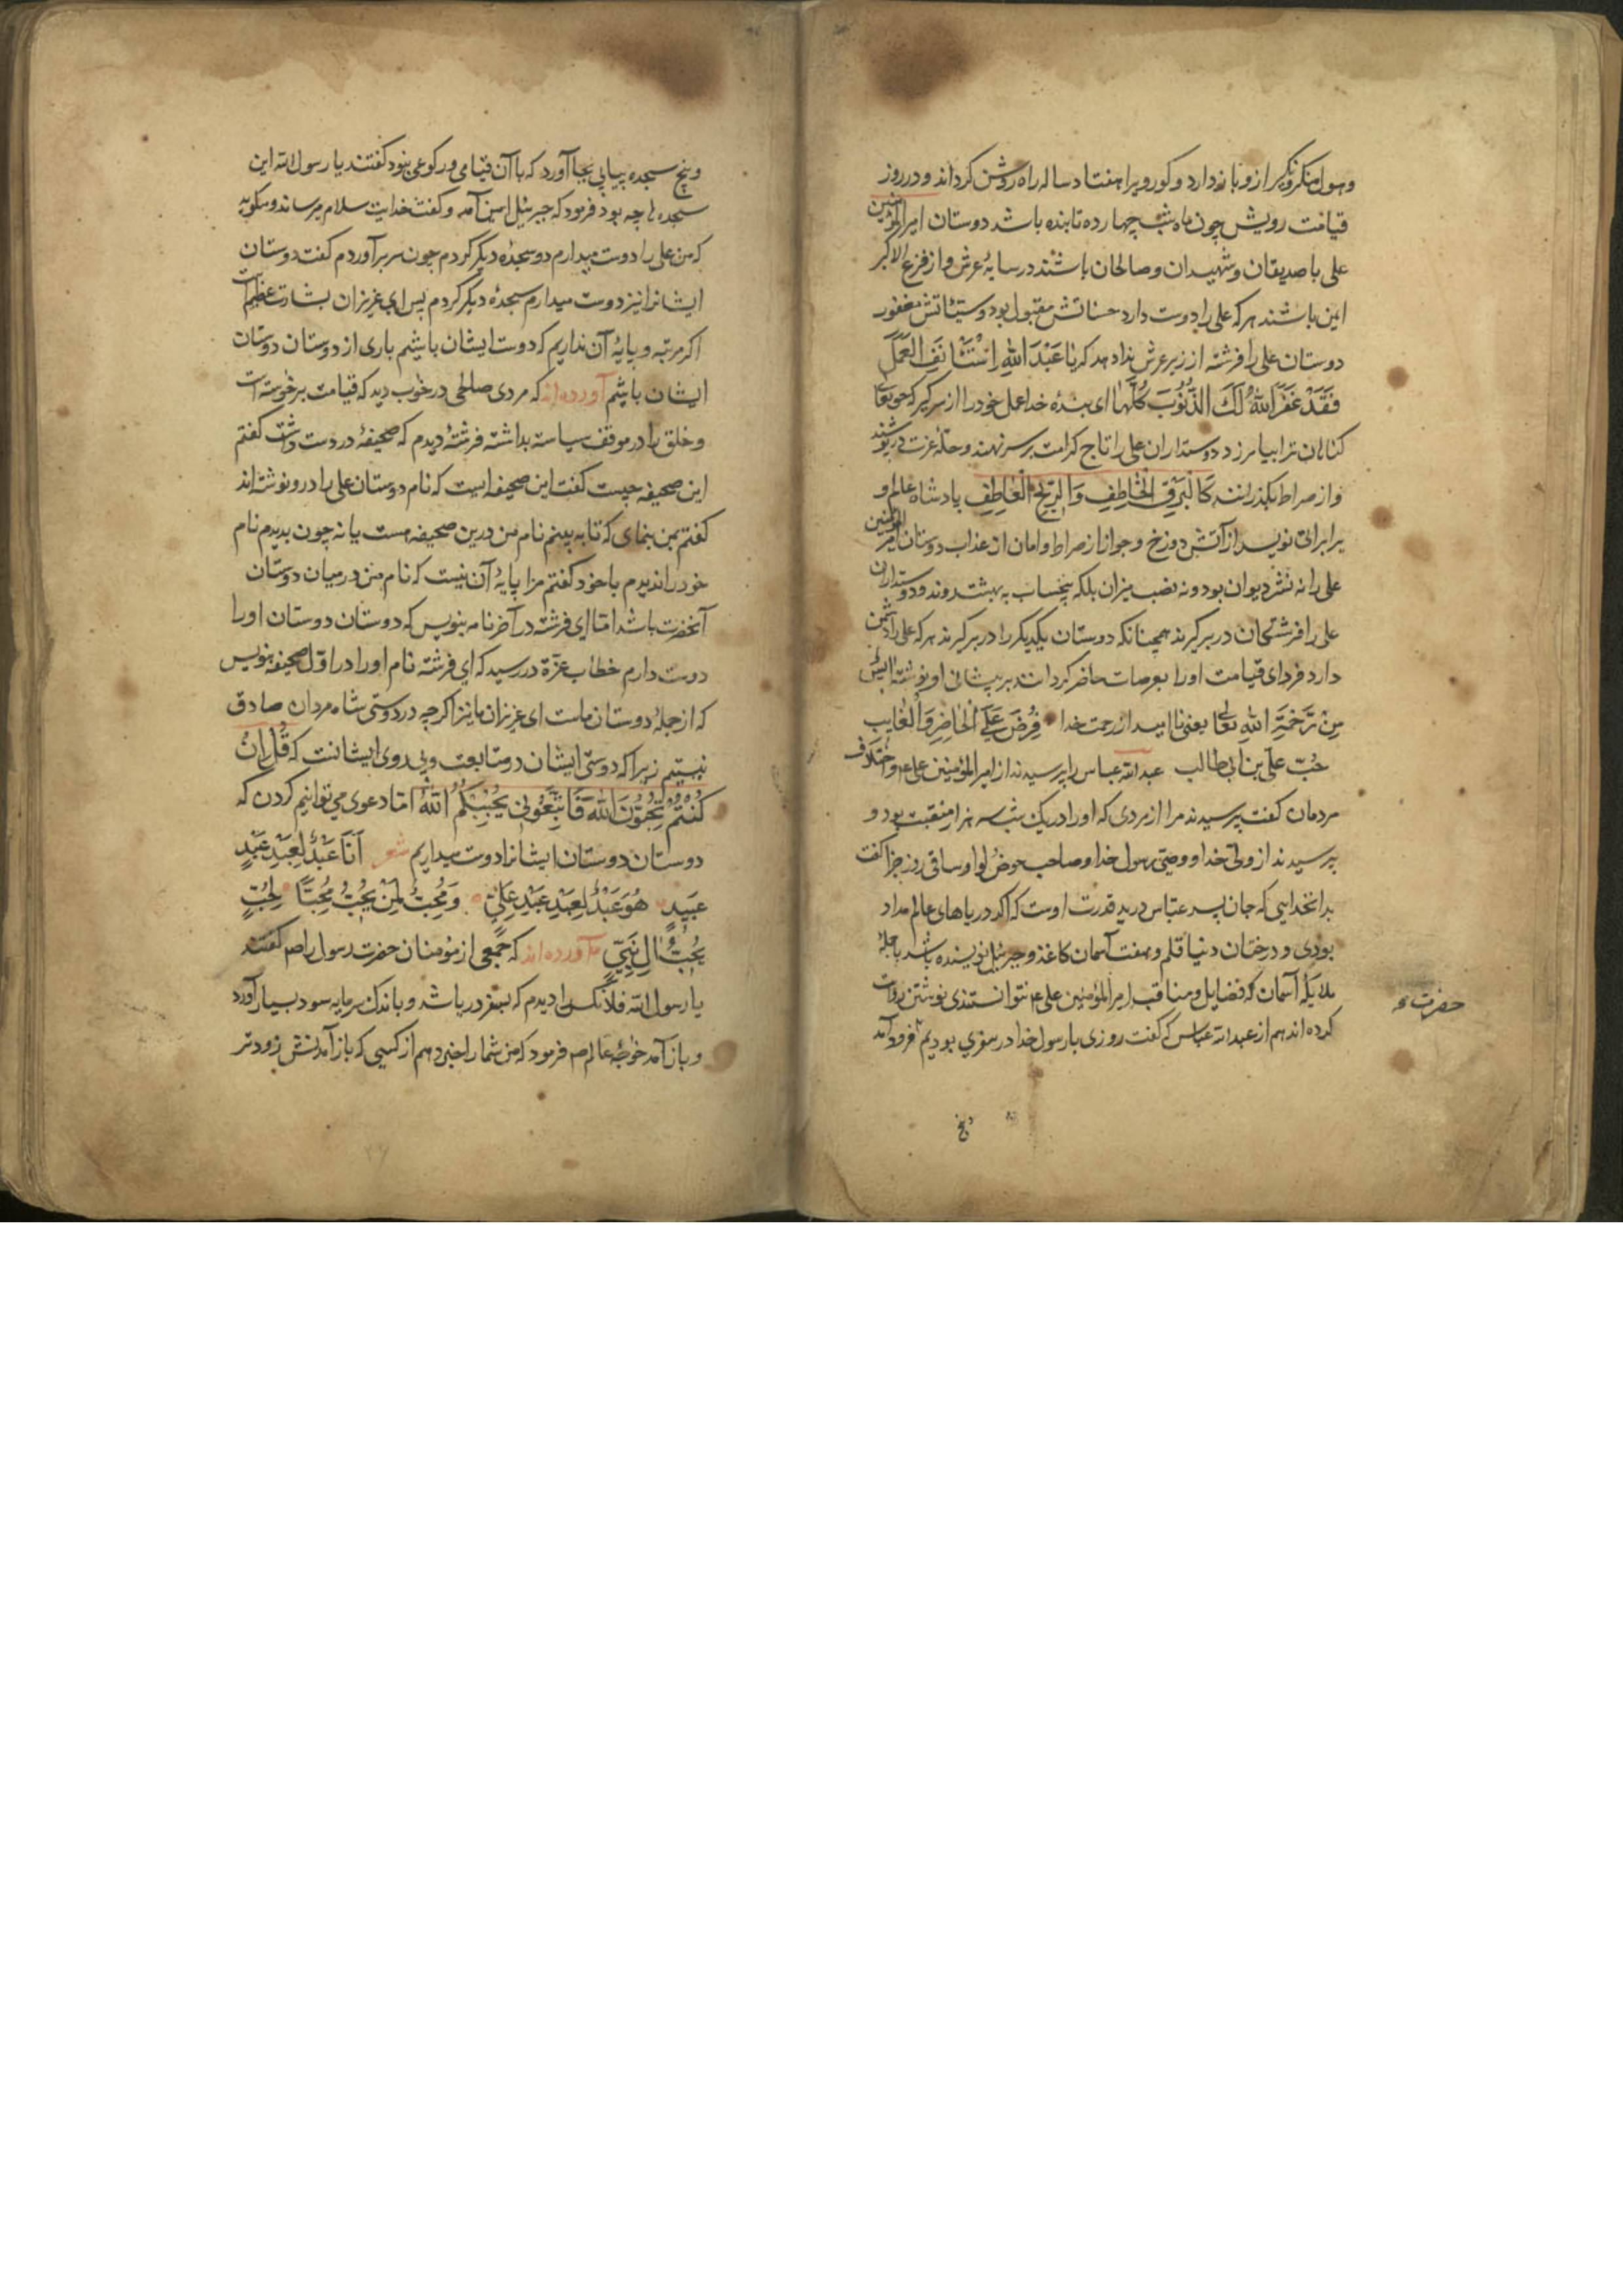 و هول منکر و نکیر ازو باز دارد و کور ویرا هفتاد ساله راه روشن کرداند و در روز
قیامت رویش چون ماه شب چهارده تابنده باشد دوستان امیرالمؤمنین
علی با صدیقان و شهیدان و صالحان باشند در سایهٔ عرش و از فزع الاکبر
ایمن باشند هر که علی را دوست دارد حسناتش مقبول بود و سیئاتش مغفور
دوستان علی را فرشته از زیر عرش ندا دهد که یَا عَبْدَ اللهِ اِسْتَأْنِفِ الْعَمَلَ
فَقَدْ غَفَرَ اللهُ لَكَ الذُّنُوبَ كُلَّهَا ای بندهٔ خدا عمل خود را از سر کیر که حق تعالی
کناهان ترا بیامرزد دوستداران علی را تاج کرامت بر سر نهند و حلهٔ عزت در پوشند
و از صراط بکذرانند کَالْبَرْقِ الْخَاطِفِ وَالرِّیحِ الْعَاصِفِ پادشاه عالم او
برابراتی نویسد از آتش دوزخ و جواز از صراط و امان از عذاب دوستان امیرالمؤمنین
علی را نه نشر دیوان بود و نه نصب میزان بلکه بیحساب به بهشت روند و دوستداران
علی را فرشتکان در بر کیرند همچنانکه دوستان یکدیکر را در بر کیرند هر که علی را دشمن
دارد فردای قیامت او را بعرصات حاضر کردانند بر پیشانی او نوشته آیسٌ
مِنْ رَحْمَةِ اللهِ تعالی یعنی نا امید از رحمت خدا فُرِضَ عَلَی الْحَاضِرِ وَالْغَایِبِ
حُبّ علی بن ابی طالب عبدالله عباس را پرسیدند از امیرالمؤمنین علی ع و اختلاف
مردمان کفت پرسیدند مرا از مردی که او را در یک شب سه هزار منقبت بود و
پرسیدند از ولی خدا و وصی رسول خدا و صاحب حوض و لوا و ساقی روز جزا کفت
بدانخدایی که جان پسر عباس در ید قدرت اوست که اکر دریاهای عالم مداد
بودی و درختان دنیا قلم و هفت آسمان کاغذ و جبرئیل نویسنده باشد با جملهٔ
ملایکهٔ آسمان که فضایل و مناقب امیرالمؤمنین علی ع نتوانستندی نوشتن روایت
حضرت
کرده اند هم از عبدالله عباس که کفت روزی با رسول خدا در سفری بودیم فرود آمد
و پنج سجده پیاپی بجا آورد که با آن قیامی و رکوعی نبود کفتند یا رسول الله این
سجدها چه بود فرمود که جبرئیل امین آمد و کفت خدایت سلام میرساند و میکوید
که من علی را دوست میدارم دو سجدهٔ دیکر کردم چون سر برآوردم کفت دوستان
ایشانرا نیز دوست میدارم سجدهٔ دیکر کردم پس ای عزیزان بشارت عظیم است
اکر مرتبه و پایهٔ آن نداریم که دوست ایشان باشیم باری از دوستان دوستان
ایشان باشیم آورده اند که مردی صالحی در خواب دید که قیامت برخوسته است
و خلق را در موقف سیاست بداشته فرشتهٔ دیدم که صحیفهٔ در دست داشت کفتم
این صحیفه چیست کفت این صحیفه است که نام دوستان علی را درو نوشته اند
کفتم بمن بنمای که تا به بینم نام من درین صحیفه هست یا نه چون بدیدم نام
خود را ندیدم با خود کفتم مرا پایهٔ آن نیست که نام من در میان دوستان
آنحضرت باشد اما ای فرشته در آخر نامه بنویس که دوستان دوستان او را
دوست دارم خطاب عزة در رسید که ای فرشته نام او را در اول صحیفه بنویس
که از جملهٔ دوستان ماست ای عزیزان ما نیز اکر چه در دوستی شاه مردان صادق
نیستیم زیرا که دوستی ایشان در متابعت و پی روی ایشانست که قُلْ اِنْ
كُنْتُمْ تُحِبُّونَ اللهَ فَاتَّبِعُونِی یُحْبِبْكُمُ اللهُ اما دعوی می توانیم کردن که
دوستان دوستان ایشانرا دوست میداریم شعر اَنَا عَبْدٌ لِعَبْدِ عَبْدِ
عَبِیدٍ هُوَ عَبْدٌ لِعَبْدِ عَبْدِ عَلِیٍّ وَ مُحِبٌّ لِمَنْ یُحِبُّ مُحِبًّا لِمُحِبٍّ
یُحِبُّ اٰلَ نَبِیٍّ آورده اند که جمعی از مؤمنان حضرت رسول را ص کفتند
یا رسول الله فلانکس را دیدم که بسفر دریا شد و باندک سرمایه سود بسیار آورد
و باز آمد خواجهٔ عالم ص فرمود که من شما را خبر دهم از کسی که باز آمدنش زودتر